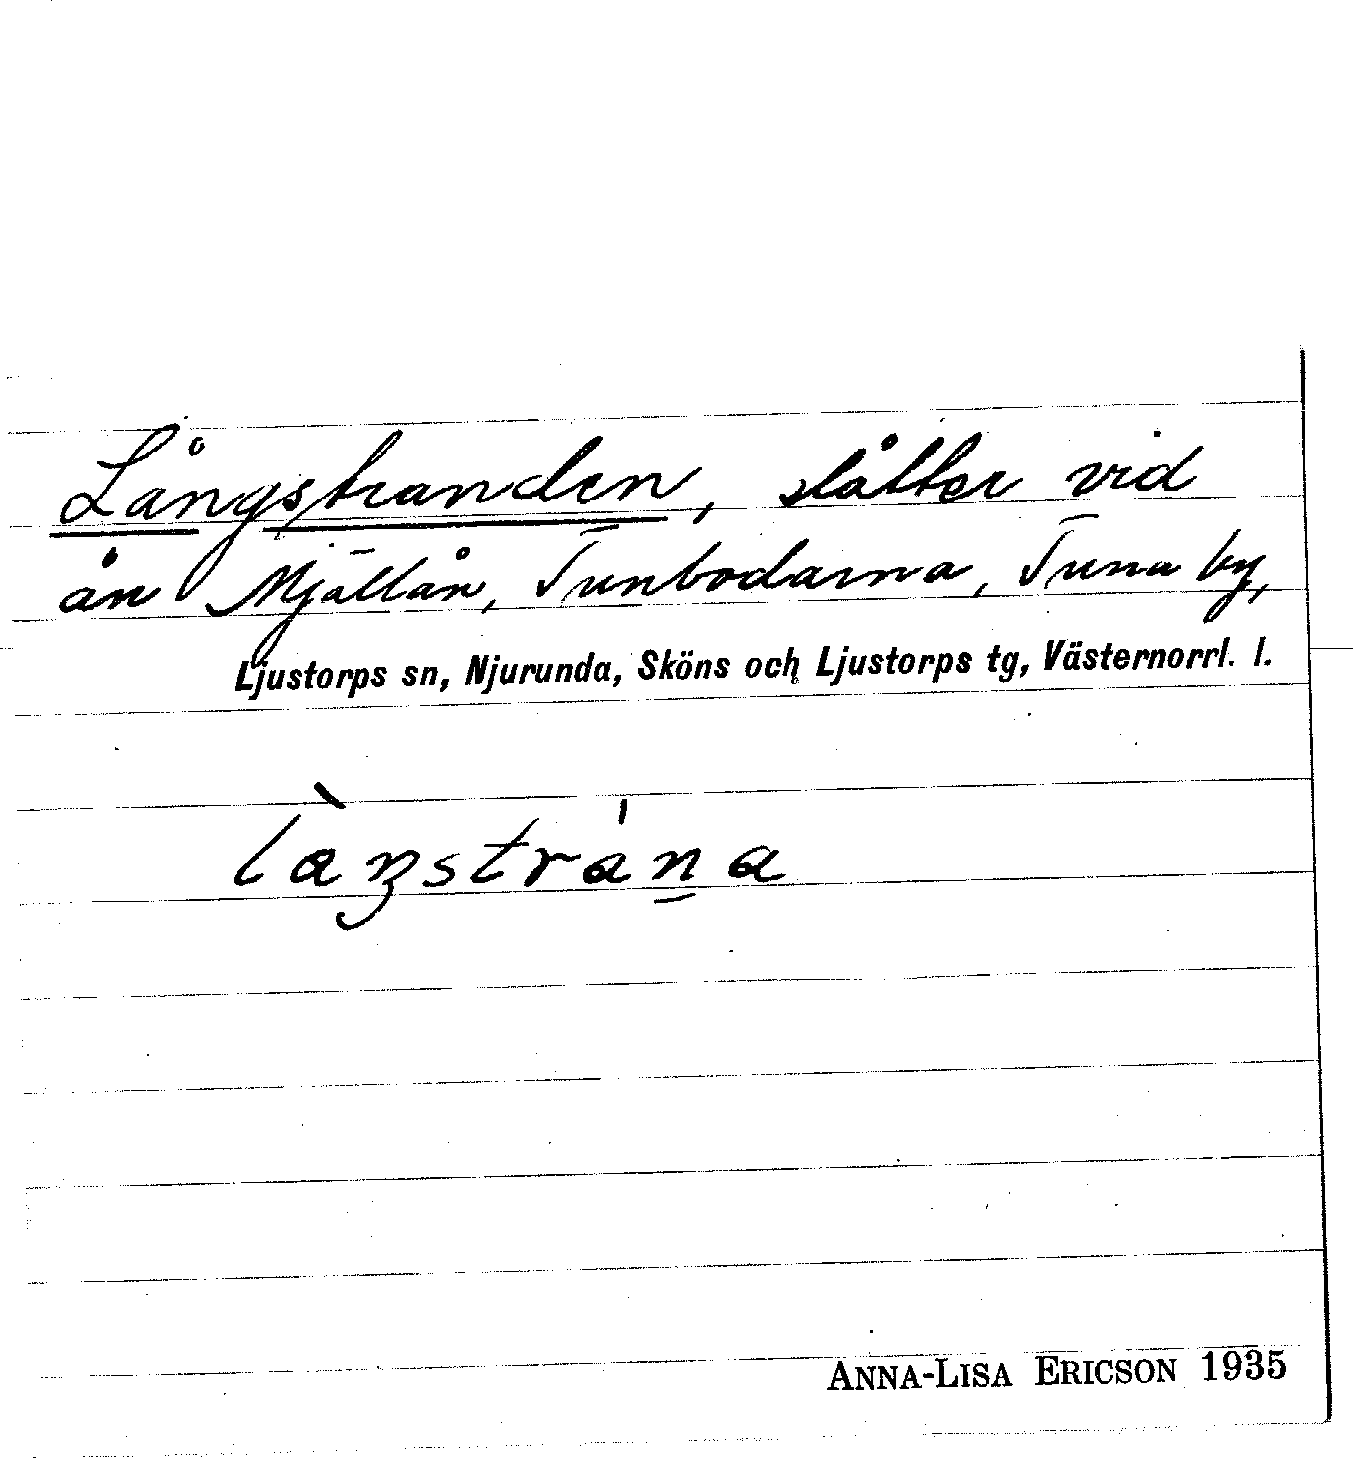 Långstranden, slåtter vid
ån Mjällån, Tunbodarna, Tuna by,
Ljustorps sn, Njurunda, Sköns och Ljustorps tg, Västernorrl. l.
làŋstrána
ANNA-LISA ERICSON 1935